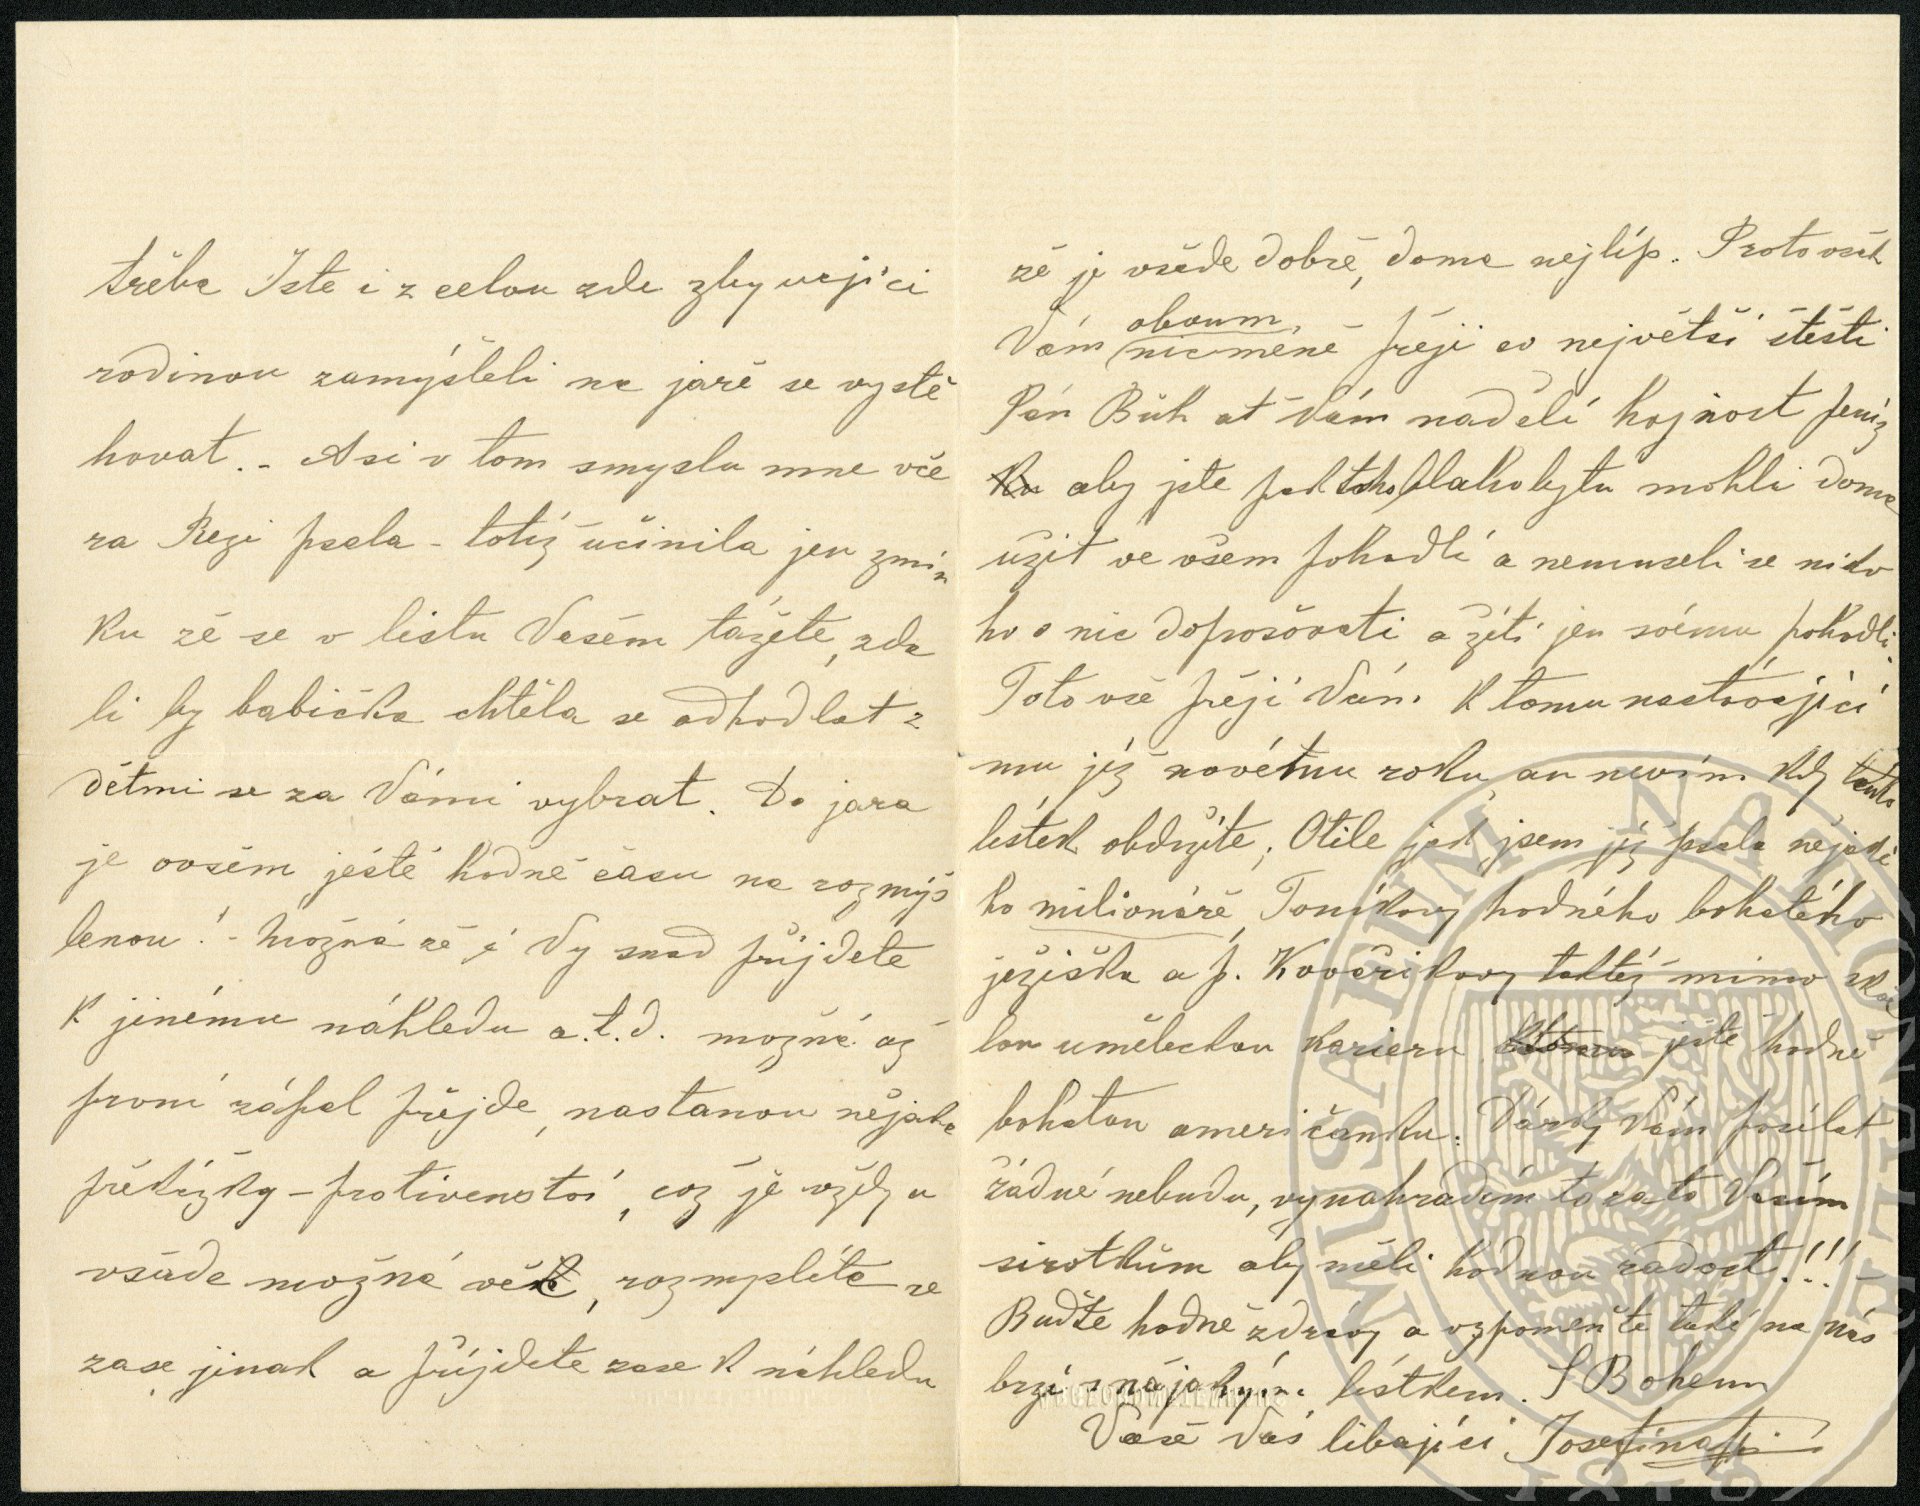 třeba Jste i z celou zde zbyvající
rodinou zamýšleli na jaře se vystě
hovat. - Asi v tom smyslu mne vče
ra Rezi psala - totiž učinila jen zmín
ku zě se v listu Vašém tážete, zda
li by babička chtěla se odhodlat z
dětmi se za Vámi vybrat. Do jara
je ovsěm jěstě hodně času na rozmýš
lenou! - Možná zě i Vy snad přijdete
k jinému náhledu a.t.d. možná až
první zápal přejde, nastanou nějaké
překážky - protivenství, což jě vždy a
všude možná věc, rozmyslíte se
zase jinak a příjdete zase k náhledu
zě je všude dobrě, doma nejlíp. Proto však
Vám oboum,
nicméně přeji co největší štěstí
Pán Bůh ať Vám nadělí hojnost peníz
ků aby jste pak toho blahobytu mohli doma
užit ve všem pohodlí a nemuseli se niko
ho o nic doprošovati a žíti jen svému pohodli.
Toto vsě přeji Vám k tomu nastávajíci
mu jěž novému roku, an nevím kdy tento
lístek obdržíte; Otile jak jsem jěž psala nějaké
ho milionářě, Toníkovy hodného bohatého
ježiška a p. Kovaříkovy taktěž mimo skvě
lou uměleckou karieru ještě hodně
bohatou američanku. Dárky Vám posílat
žádné nebudu, vynahradím to za to Vaším
sirotkům aby měli hodnou radost!!!
Buďte hodně zdrávy a vzpomeňte také na nás
brzi s nějakým lístkem. S Bohem
Vasě Vás líbající Josefina
MUSAEUM NATIONALE
1818